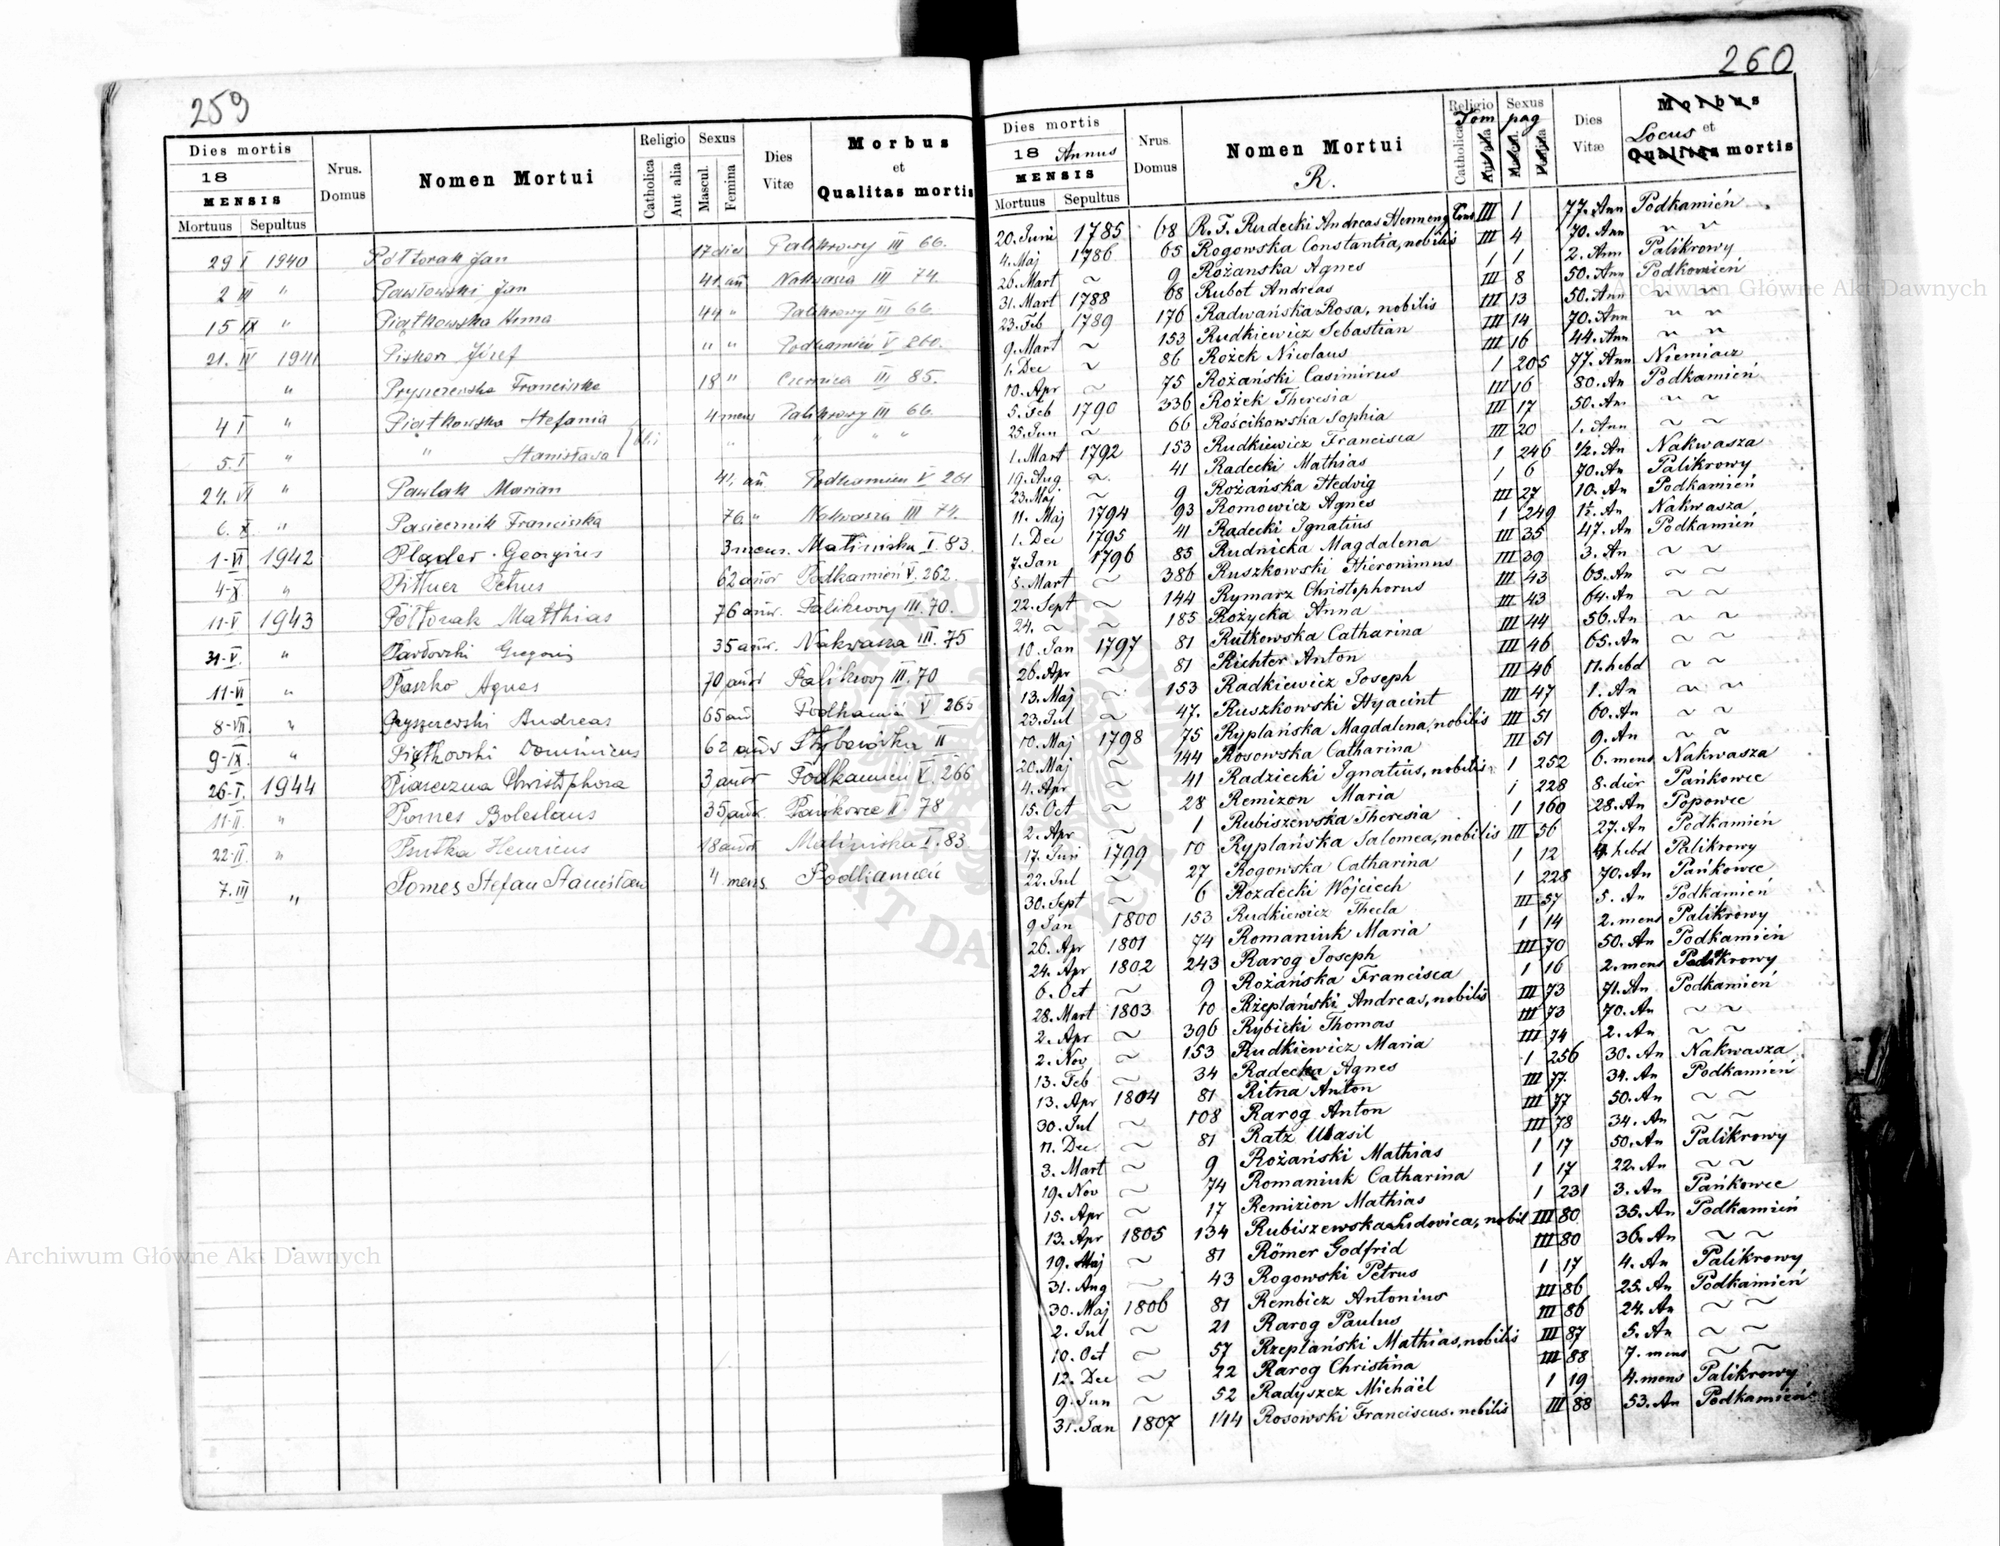 259
Dies mortis
18
MENSIS
Mortuus Sepultus
Nrus. Domus
Nomen Mortui
Religio
Catholica
Aut alia
Sexus
Mascul.
Femina
Dies Vitæ
Morbus
et
Qualitas mortis
29 I 1940 Półtorak Jan 17 dies Palikrowy III 66.
2 III " Pawłowski Jan 41. añ Nakwasza III 74.
15 IX " Piątkowska Anna 44 " Palikrowy III 66.
21. IV 1941 Piskorz Józef " " Podkamień V 260.
" Pryszczewska Franciszka 18 " Czernica III 85.
4 I " Piątkowska Stefania 4 mens Palikrowy III 66.
5. I " " Stanisława " " " "
24. VI " Pawlak Marian 41. añ. Podkamień V 261
6. X " Pasiecznik Franciszka 76. " Nakwasza III 74.
1-VI 1942 Pląder Georgius 3 mens. Maliniska I. 83.
4-X " Pittner Petrus 62 añor Podkamień V. 262.
11-V 1943 Półtorak Matthias 76 añor. Palikrowy III. 70.
31-V. " Pawłowski Gregorius 35 añor. Nakwasza III. 75
11-VI " Paszko Agnes 70 añor Palikrowy III. 70
8-VII " Pryszczewski Andreas 65 añ Podkamień V 265
9-IX. " Piątkowski Dominicus 62 añor II
26-I. 1944 Piaseczna Christophora 3 añor Podkamień V. 266
11-II. " Pomes Boleslaus 35 añor. Pańkowce II. 78
22-II. " Psutka Henricus 18 añor Maliniska I. 83.
7. III " Pomes Stefan Stanisław 4 mens. Podkamień
260
Dies mortis
18 Annus
MENSIS
Mortuus Sepultus
Nrus. Domus
Nomen Mortui
R.
Religio
Catholica
Aut alia
Sexus
Mascul.
Femina
Tom pag
Dies Vitæ
Morbus
Locus et
Qualitas mortis
20. Juni 1785 68 R. F. Rudecki Andreas III 1 77. Ann Podkamień
4. Maj 1786 65 Rogowska Constantia, nobilis III 4 70. Ann ~ ~
26. Mart ~ 9 Różanska Agnes 1 1 2. Ann Palikrowy
31. Mart 1788 68 Rubot Andreas III 8 50. Ann Podkamień
23. Feb 1789 176 Radwańska Rosa, nobilis III 13 50. Ann ~ ~
9. Mart ~ 153 Rudkiewicz Sebastian III 14 70. Ann ~ ~
1. Dec ~ 86 Rożek Nicolaus III 16 44. Ann ~ ~
10. Apr ~ 75 Rożański Casimirus 1 205 77. Ann Niemiacz
5. Feb 1790 336 Rożek Theresia III 16 80. An Podkamień
25. Jun ~ 66 Rościkowska Sophia III 17 50. An ~ ~
1. Mart 1792 153 Rudkiewicz Francisca III 20 1. Ann ~ ~
19. Aug ~ 41 Radecki Mathias 1 246 1/2. An Nakwasza
23. Maj ~ 9 Rożańska Hedvig 1 6 70. An Palikrowy
11. Maj 1794 93 Romowicz Agnes III 27 10. An Podkamień
1. Dec 1795 41 Radecki Ignatius 1 249 1½. An Nakwasza
7. Jan 1796 85 Rudnicka Magdalena III 35 47. An Podkamień
8. Mart ~ 386 Ruszkowski Hieronimus III 39 3. An ~ ~
22. Sept ~ 144 Rymarz Christophorus III 43 63. An ~ ~
24. ~ ~ 185 Rożycka Anna III 43 64. An ~ ~
10. Jan 1797 81 Rutkowska Catharina III 44 56. An ~ ~
26. Apr ~ 81 Richter Anton III 46 65. An ~ ~
13. Maj ~ 153 Radkiewicz Joseph III 46 11. hebd ~ ~
23. Jul ~ 47. Ruszkowski Hyacint III 47 1. An ~ ~
10. Maj 1798 75 Ryplańska Magdalena, nobilis III 51 60. An ~ ~
20. Maj ~ 144 Rosowska Catharina III 51 9. An ~ ~
4. Apr ~ 41 Radziecki Ignatius, nobilis 1 252 6. mens Nakwasza
15. Oct ~ 28 Remizon Maria 1 228 8. dier Pańkowce
2. Apr ~ 1 Rubiszewska Theresia 1 160 28. An Popowce
17. Jun 1799 10 Ryplańska Salomea, nobilis III 56 27. An Podkamień
22. Jul ~ 27 Rogowska Catharina 1 12 4. hebd Palikrowy
30. Sept ~ 6 Rozdecki Wojciech 1 228 70. An Pańkowce
9 Jan 1800 153 Rudkiewicz Thecla III 57 5. An Podkamień
26. Apr 1801 74 Romaniuk Maria 1 14 2. mens Palikrowy
24. Apr 1802 243 Rarog Joseph III 70 50. An Podkamień
6. Oct ~ 9 Rożańska Francisca 1 16 2. mens Palikrowy
28. Mart 1803 10 Rzeplański Andreas, nobilis III 73 71. An Podkamień
2. Apr ~ 396 Rybicki Thomas III 73 70. An ~ ~
2. Nov ~ 153 Rudkiewicz Maria III 74 2. An ~ ~
13. Feb ~ 34 Radecka Agnes 1 256 30. An Nakwasza
13. Apr 1804 81 Ritna Anton III 77. 34. An Podkamień
30. Jul ~ 108 Rarog Anton III 77 50. An ~ ~
11. Dec ~ 81 Ratz Wasil III 78 34. An ~ ~
3. Mart ~ 9 Rożański Mathias 1 17 50. An Palikrowy
19. Nov ~ 74 Romaniuk Catharina 1 17 22. An ~ ~
15. Apr ~ 17 Remizion Mathias 1 231 3. An Pańkowce
13. Apr 1805 134 Rubiszewska Ludovica, nobil III 80 35. An Podkamień
19. Maj ~ 81 Römer Godfrid III 80 36. An ~ ~
31. Aug ~ 43 Rogowski Petrus 1 17 4. An Palikrowy
30. Maj 1806 81 Rembicz Antonius III 86 25. An Podkamień
2. Jul ~ 21 Rarog Paulus III 86 24. An ~ ~
10. Oct ~ 57 Rzeplański Mathias, nobilis III 87 5. An ~ ~
12. Dec ~ 22 Rarog Christina III 88 7. mens ~ ~
9. Jun ~ 52 Radyszcz Michäel 1 19 4. mens Palikrowy
31. Jan 1807 144 Rosowski Franciscus, nobilis III 88 53. An Podkamień
Archiwum Główne Akt Dawnych
Archiwum Główne Akt Dawnych